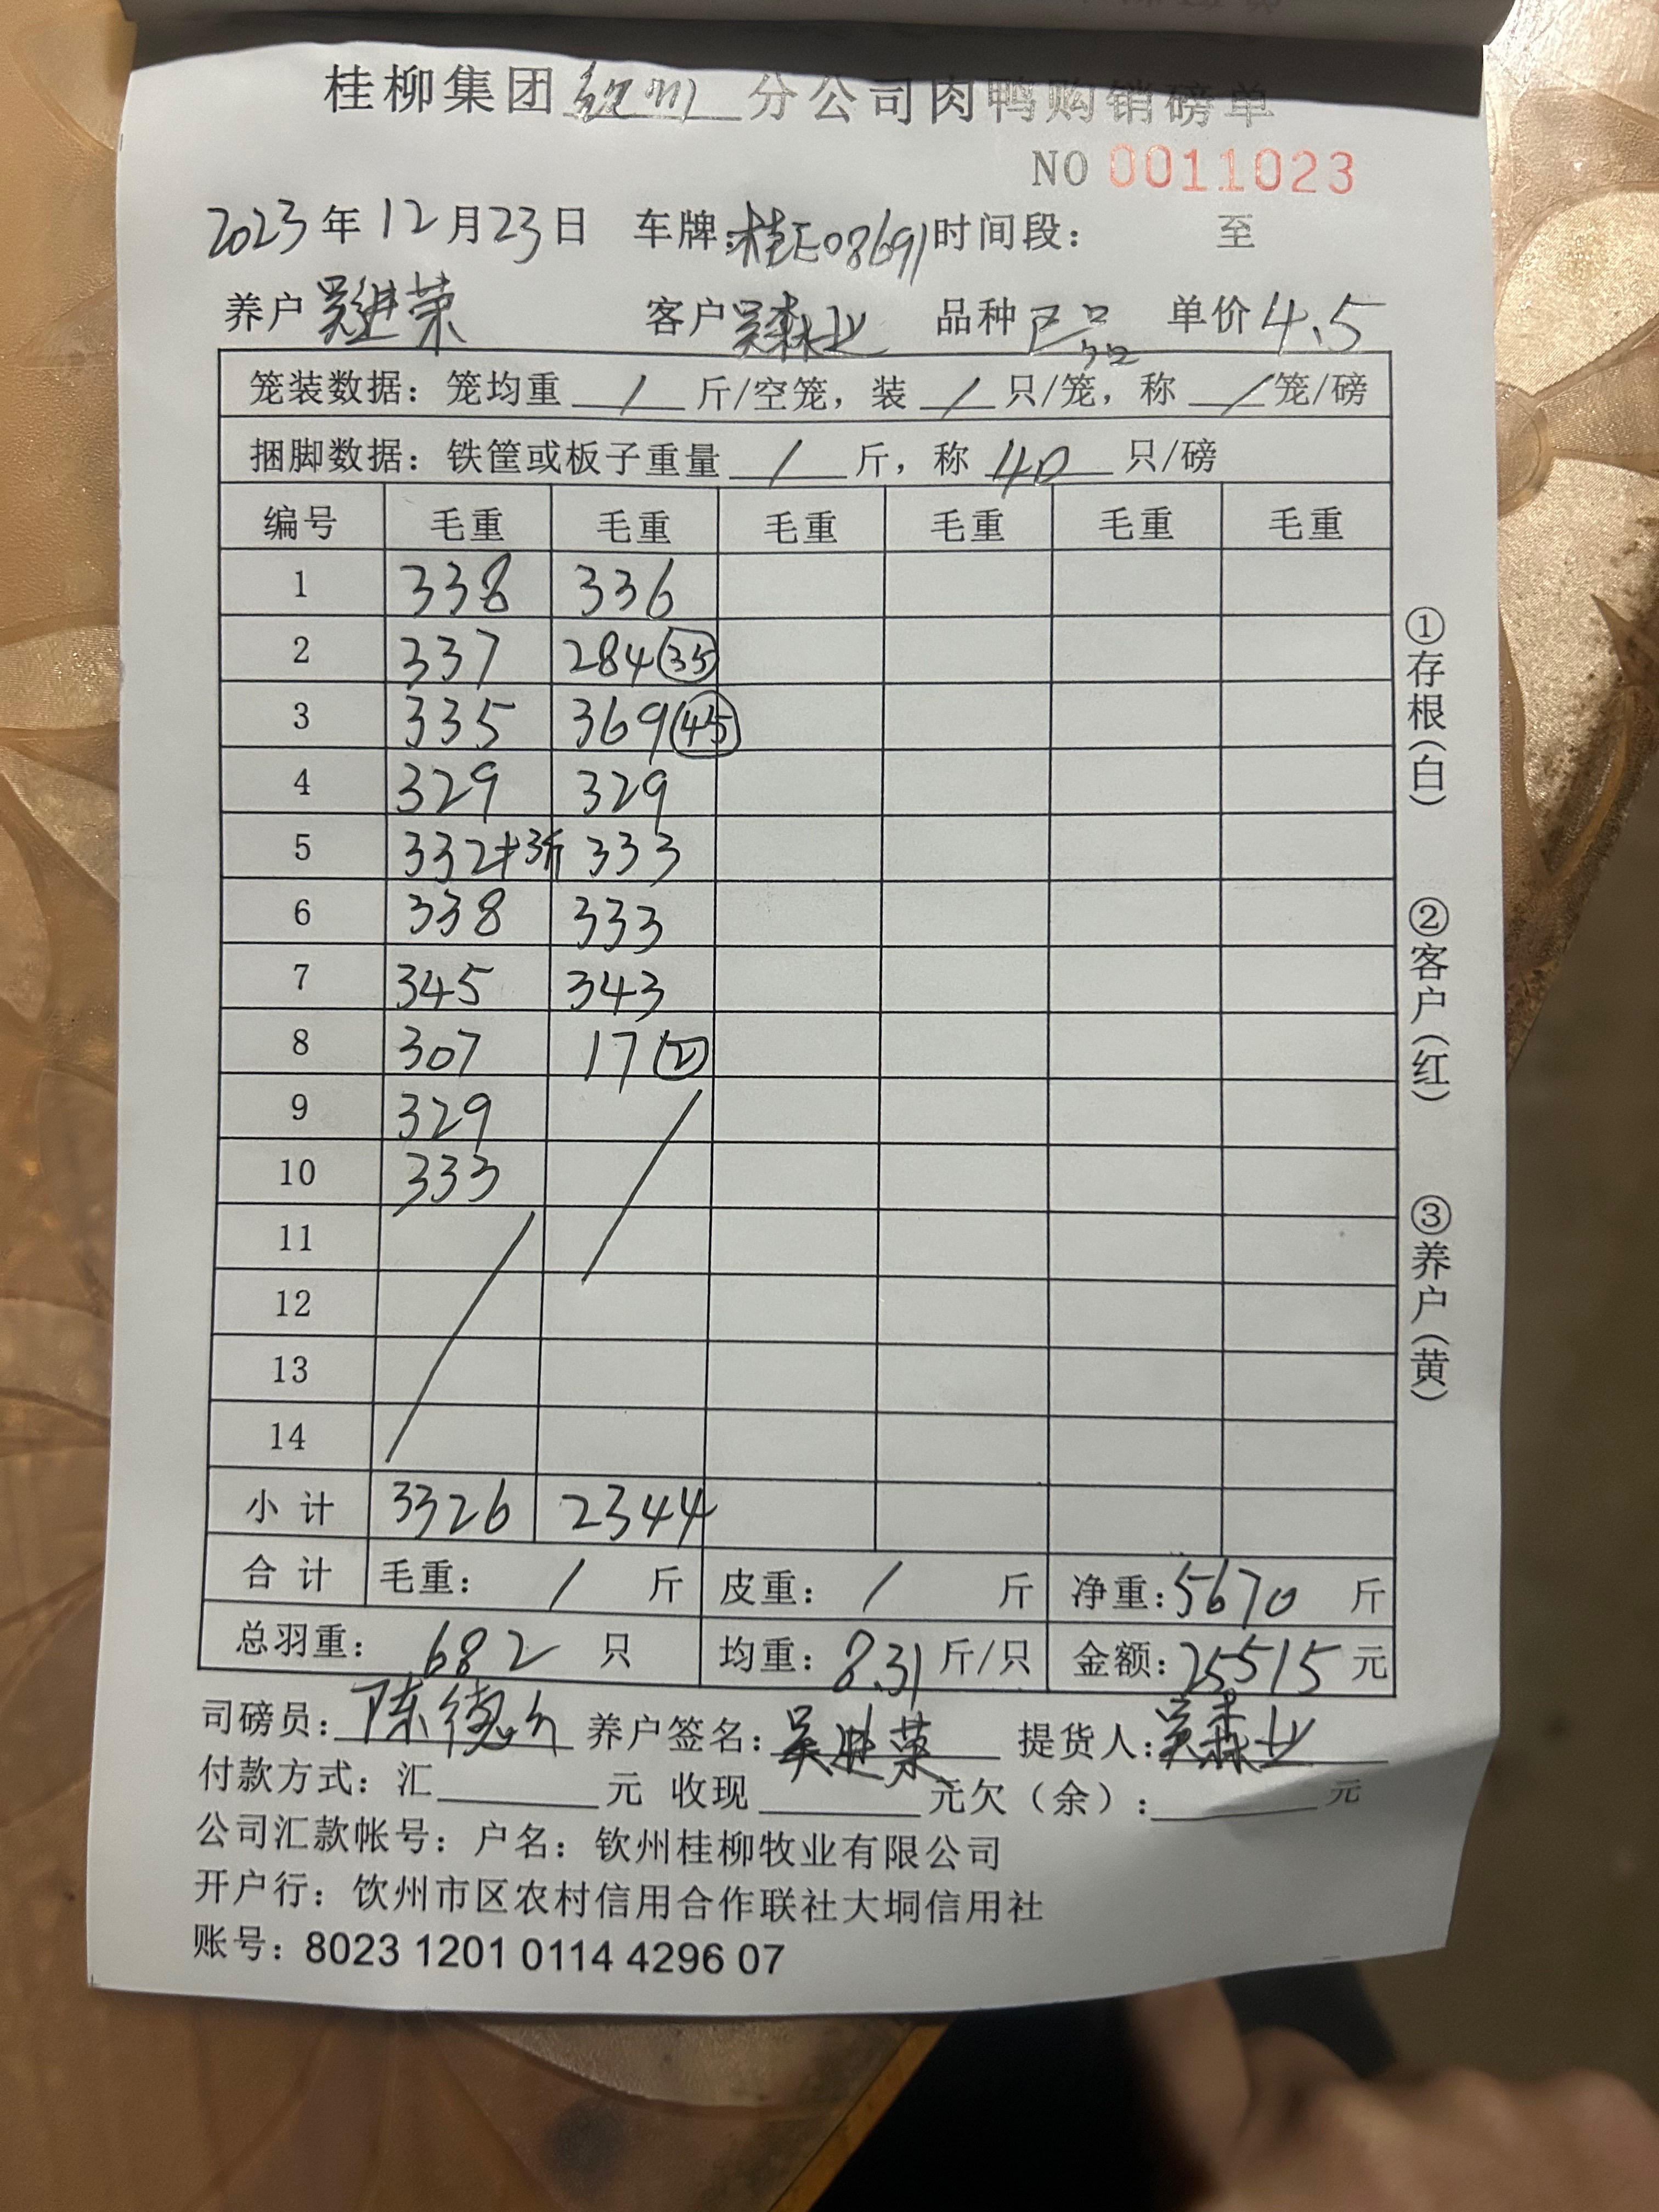 桂柳集团钦州分公司肉鸭购销磅单
NO 0011023
2023年12月23日 车牌:桂E08691时间段: 至
养户吴进荣 客户吴森业 品种 单价4.5
笼装数据: 笼均重 / 斤/空笼, 装 / 只/笼, 称 / 笼/磅
捆脚数据: 铁筐或板子重量 / 斤, 称 40 只/磅
编号 毛重 毛重 毛重 毛重 毛重 毛重
1 338 336
2 337 284(35)
3 335 369(45)
4 329 329
5 332+3斤 333
6 338 333
7 345 343
8 307 17(2)
9 329
10 333
11
12
13
14
小计 3326 2344
合计 毛重: / 斤 皮重: / 斤 净重:5670 斤
总羽重: 682 只 均重: 8.31斤/只 金额:25515元
司磅员: 陈德 养户签名: 吴进荣 提货人:吴森业
付款方式: 汇 元 收现 元欠(余): 元
公司汇款帐号: 户名: 钦州桂柳牧业有限公司
开户行: 饮州市区农村信用合作联社大垌信用社
账号: 8023 1201 0114 4296 07
①存根(白) ②客户(红) ③养户(黄)